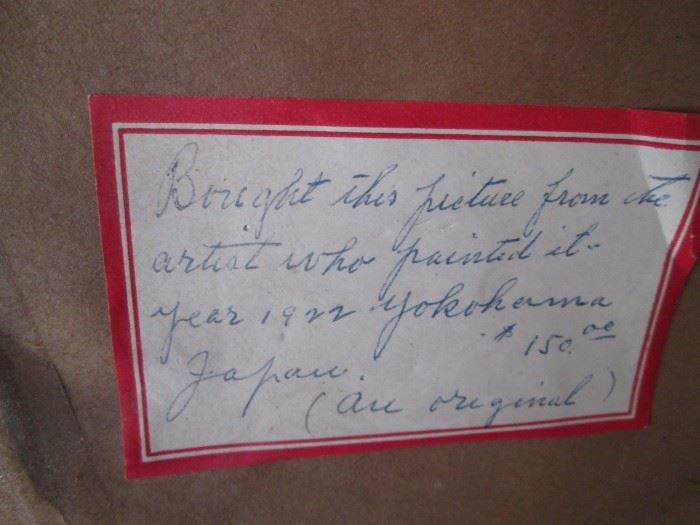 Bought this picture from the
artist who painted it-
year 1922 Yokohama
$150.00
Japan.
(an original)